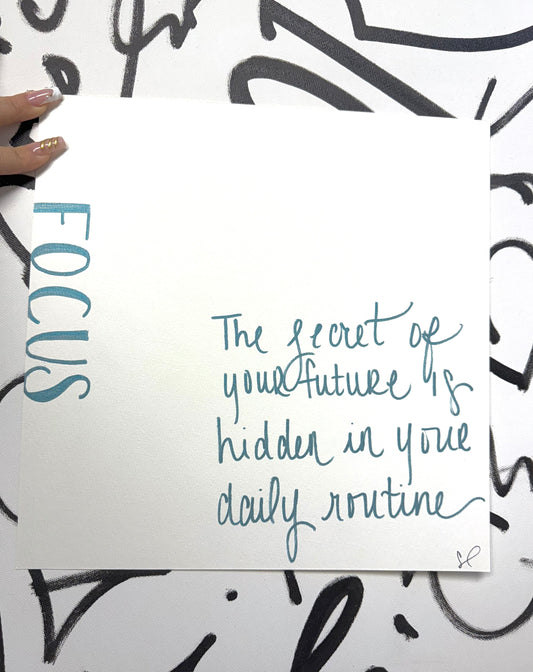 FOCUS
The secret of
your future is
hidden in your
daily routine